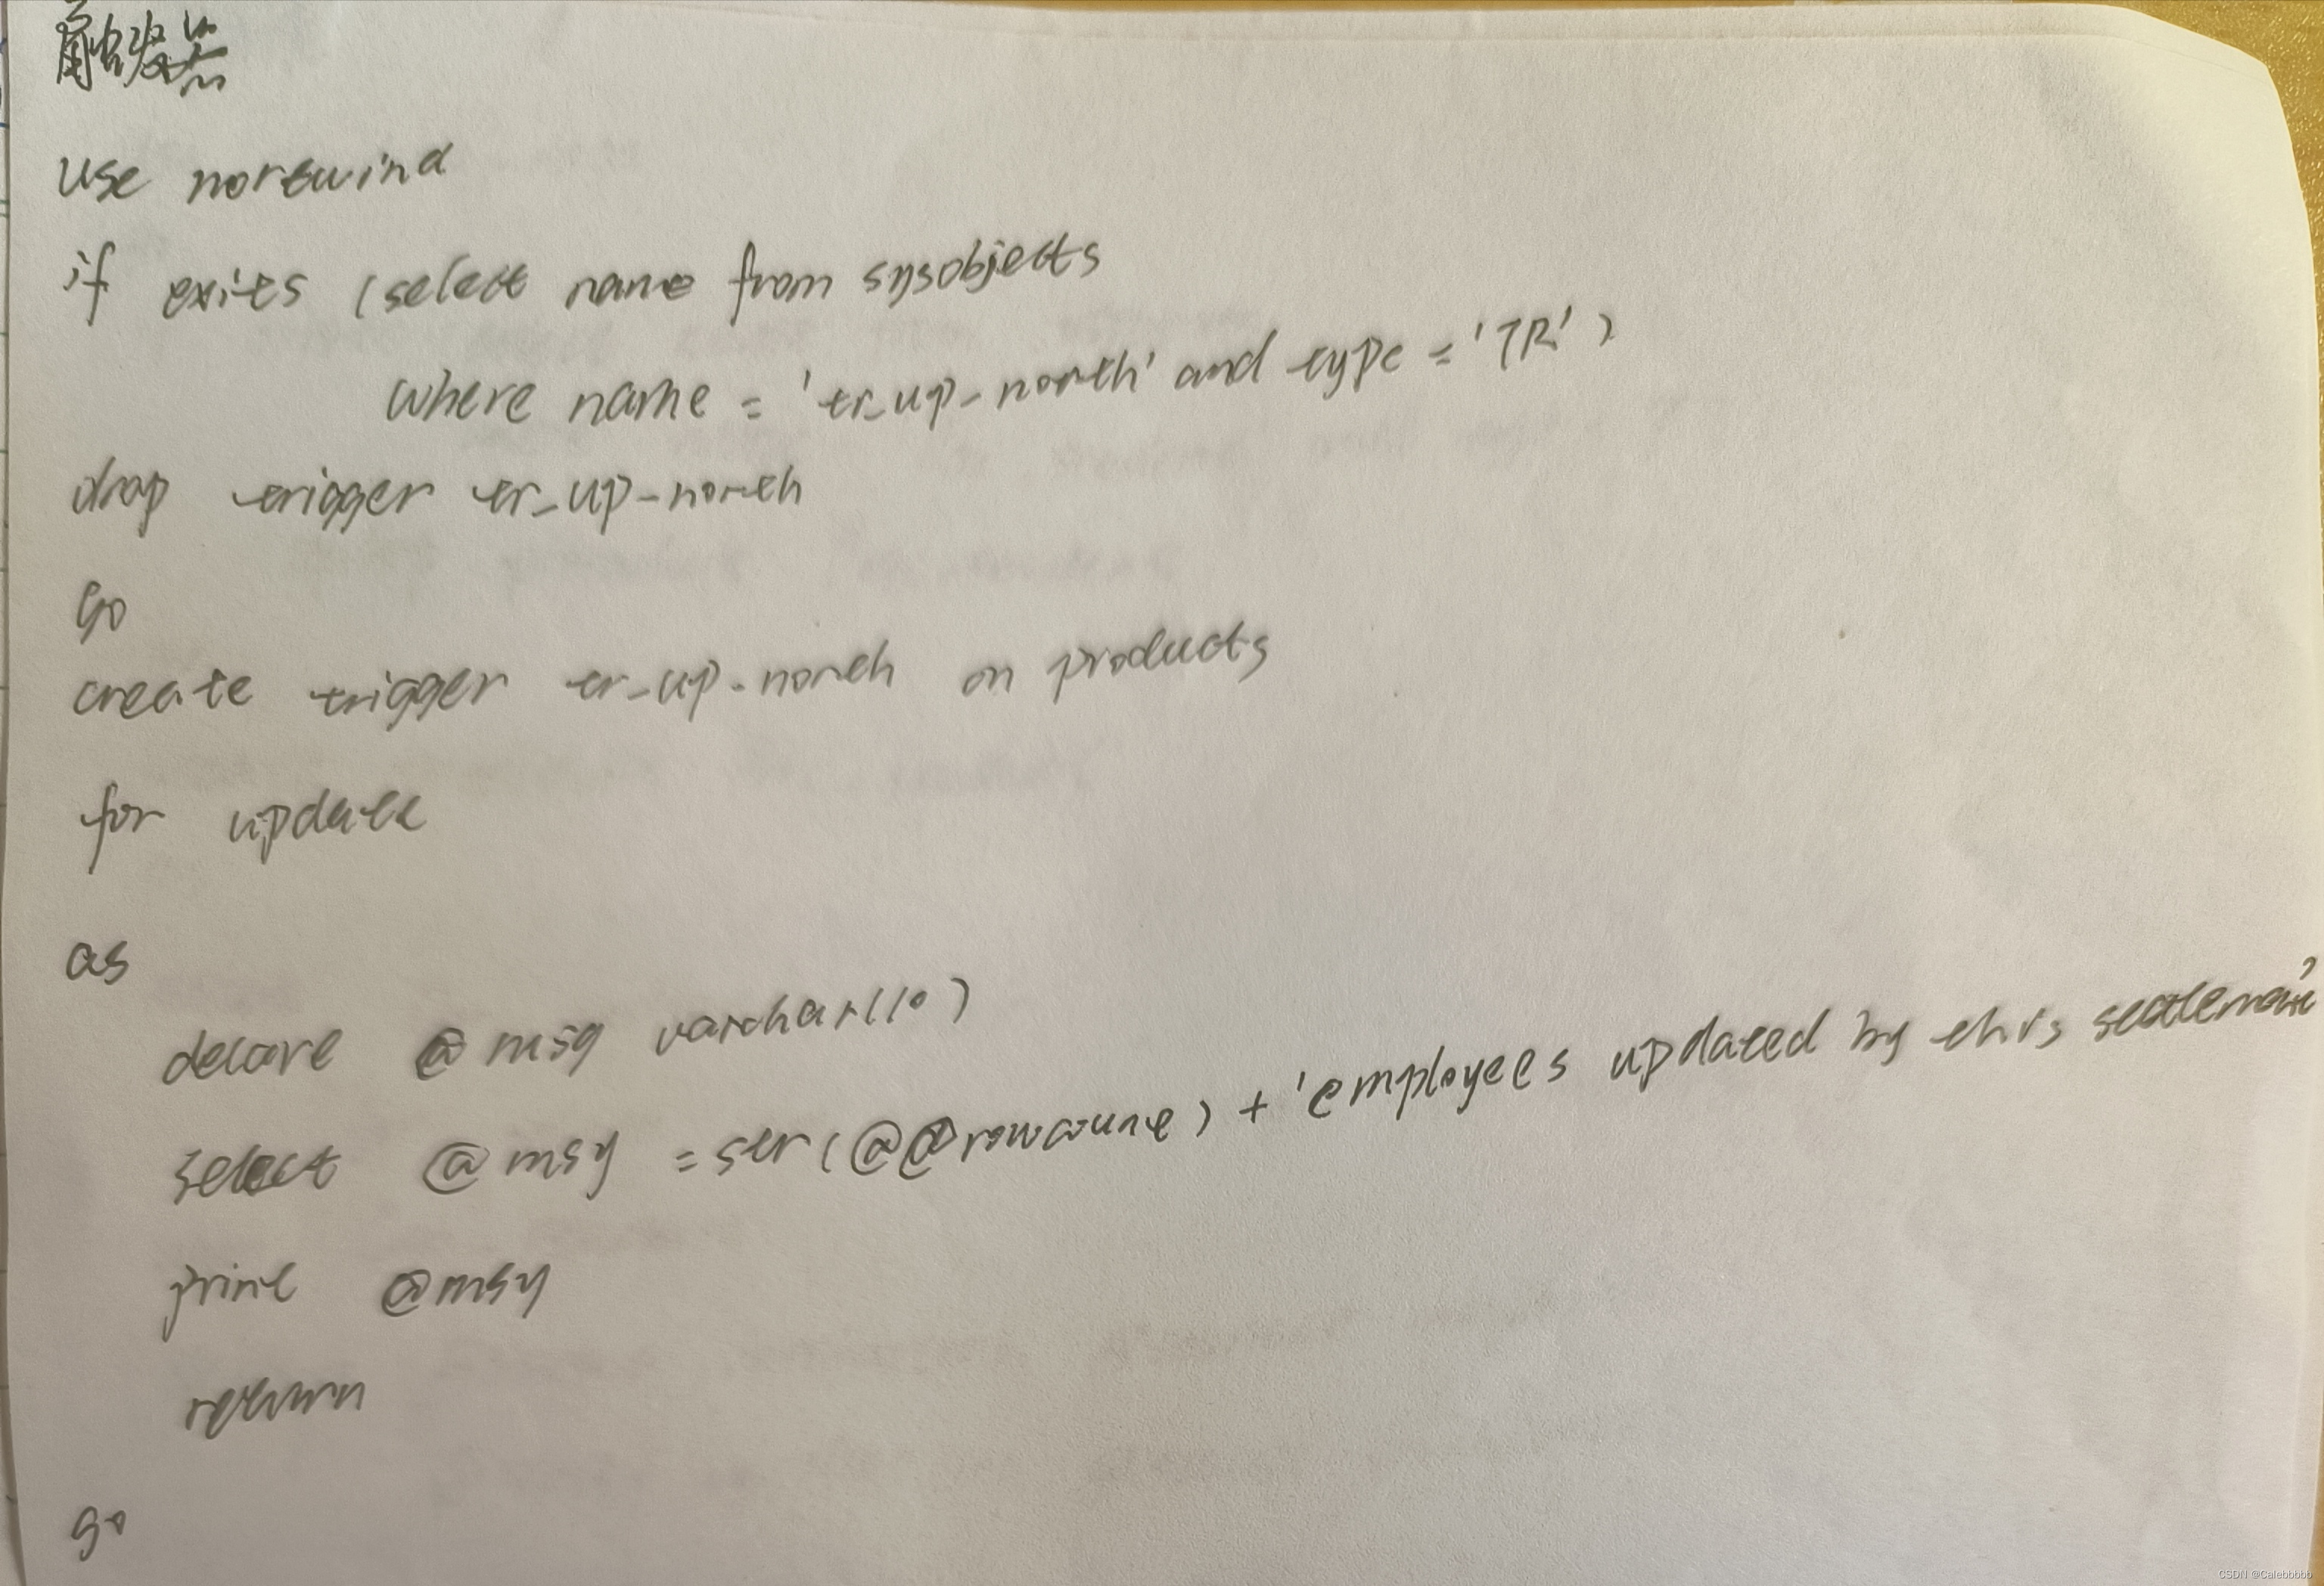 触发器
use nortwind
if exites (select name from sysobjects
where name = 'tr_up_north' and type = 'TR')
drop trigger tr_up_north
Go
create trigger tr_up_north on products
for update
as
declare @msg varchar(110)
select @msg = str(@@rowcount) + 'employees updated by this
print @msg
return
go
CSDN @Calebbbbb